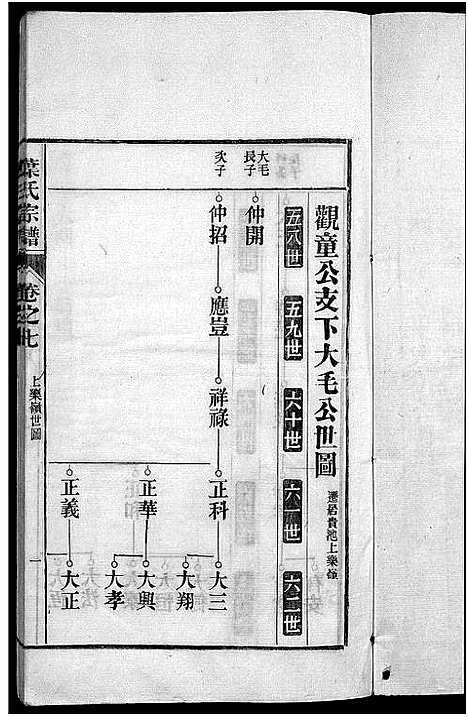 觀童公支下大毛公世圖
遷居貴池上樂嶺
五八世
五九世
六十世
六一世
六二世
大毛長子
仲開
次子
仲招
應豈
祥祿
正科
大三
大翔
正華
大興
大孝
正義
大正
葉氏宗譜
卷之七
上樂嶺世圖
一